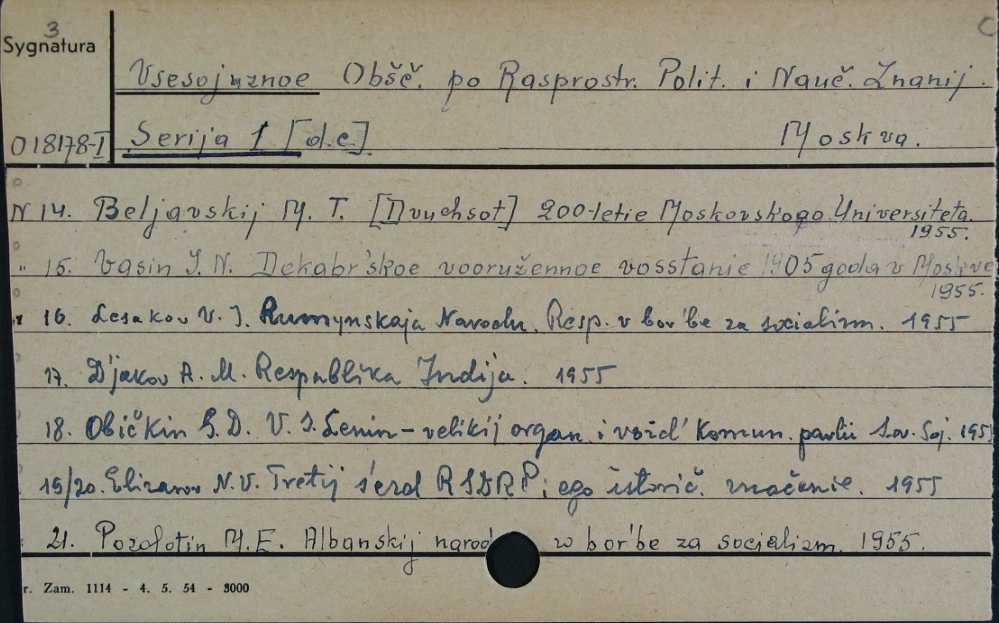 3
Sygnatura
Vsesojuznoe Obšč. po Rasprostr. Polit. i Nauč. Znanij.
018178-I Serija 1 [d.c.] Moskva.
N 14. Beljavskij M. T. [Dvuchsot] 200-letie Moskovskogo Universiteta.
1955.
" 15. Vasin I. N. Dekabr'skoe vooružennoe vosstanie 1905 goda v Moskve
1955.
16. Lesakov V. I. Rumynskaja Narodn. Resp. v bor'be za socializm. 1955
17. D'jakov A. M. Respublika Indija. 1955
18. Običkin G. D. V. I. Lenin - velikij organ. i vožd' Komun. partii Sov. Soj. 195
19/20. Elizarov N. V. Tretij s'ezd RSDRP i ego istorič. značenie. 1955
21. Pozolotin M. E. Albanskij narod w bor'be za socjalizm. 1955.
r. Zam. 1114 - 4. 5. 54 - 3000